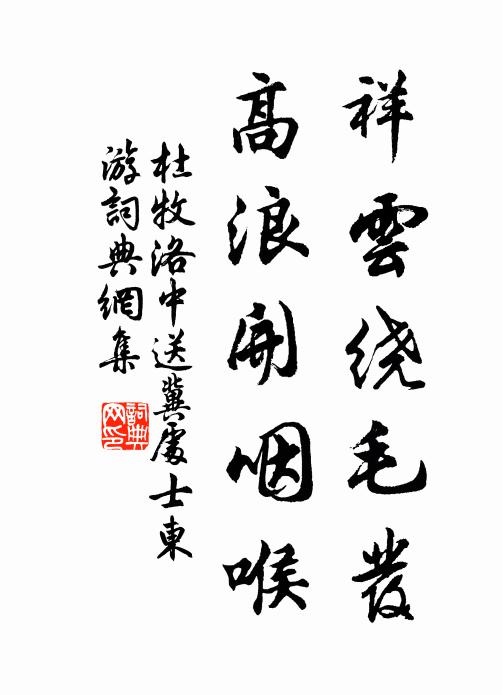 祥雲繞毛發
高浪開咽喉
杜牧洛中送冀處士東
游詞典網集
詞典网印